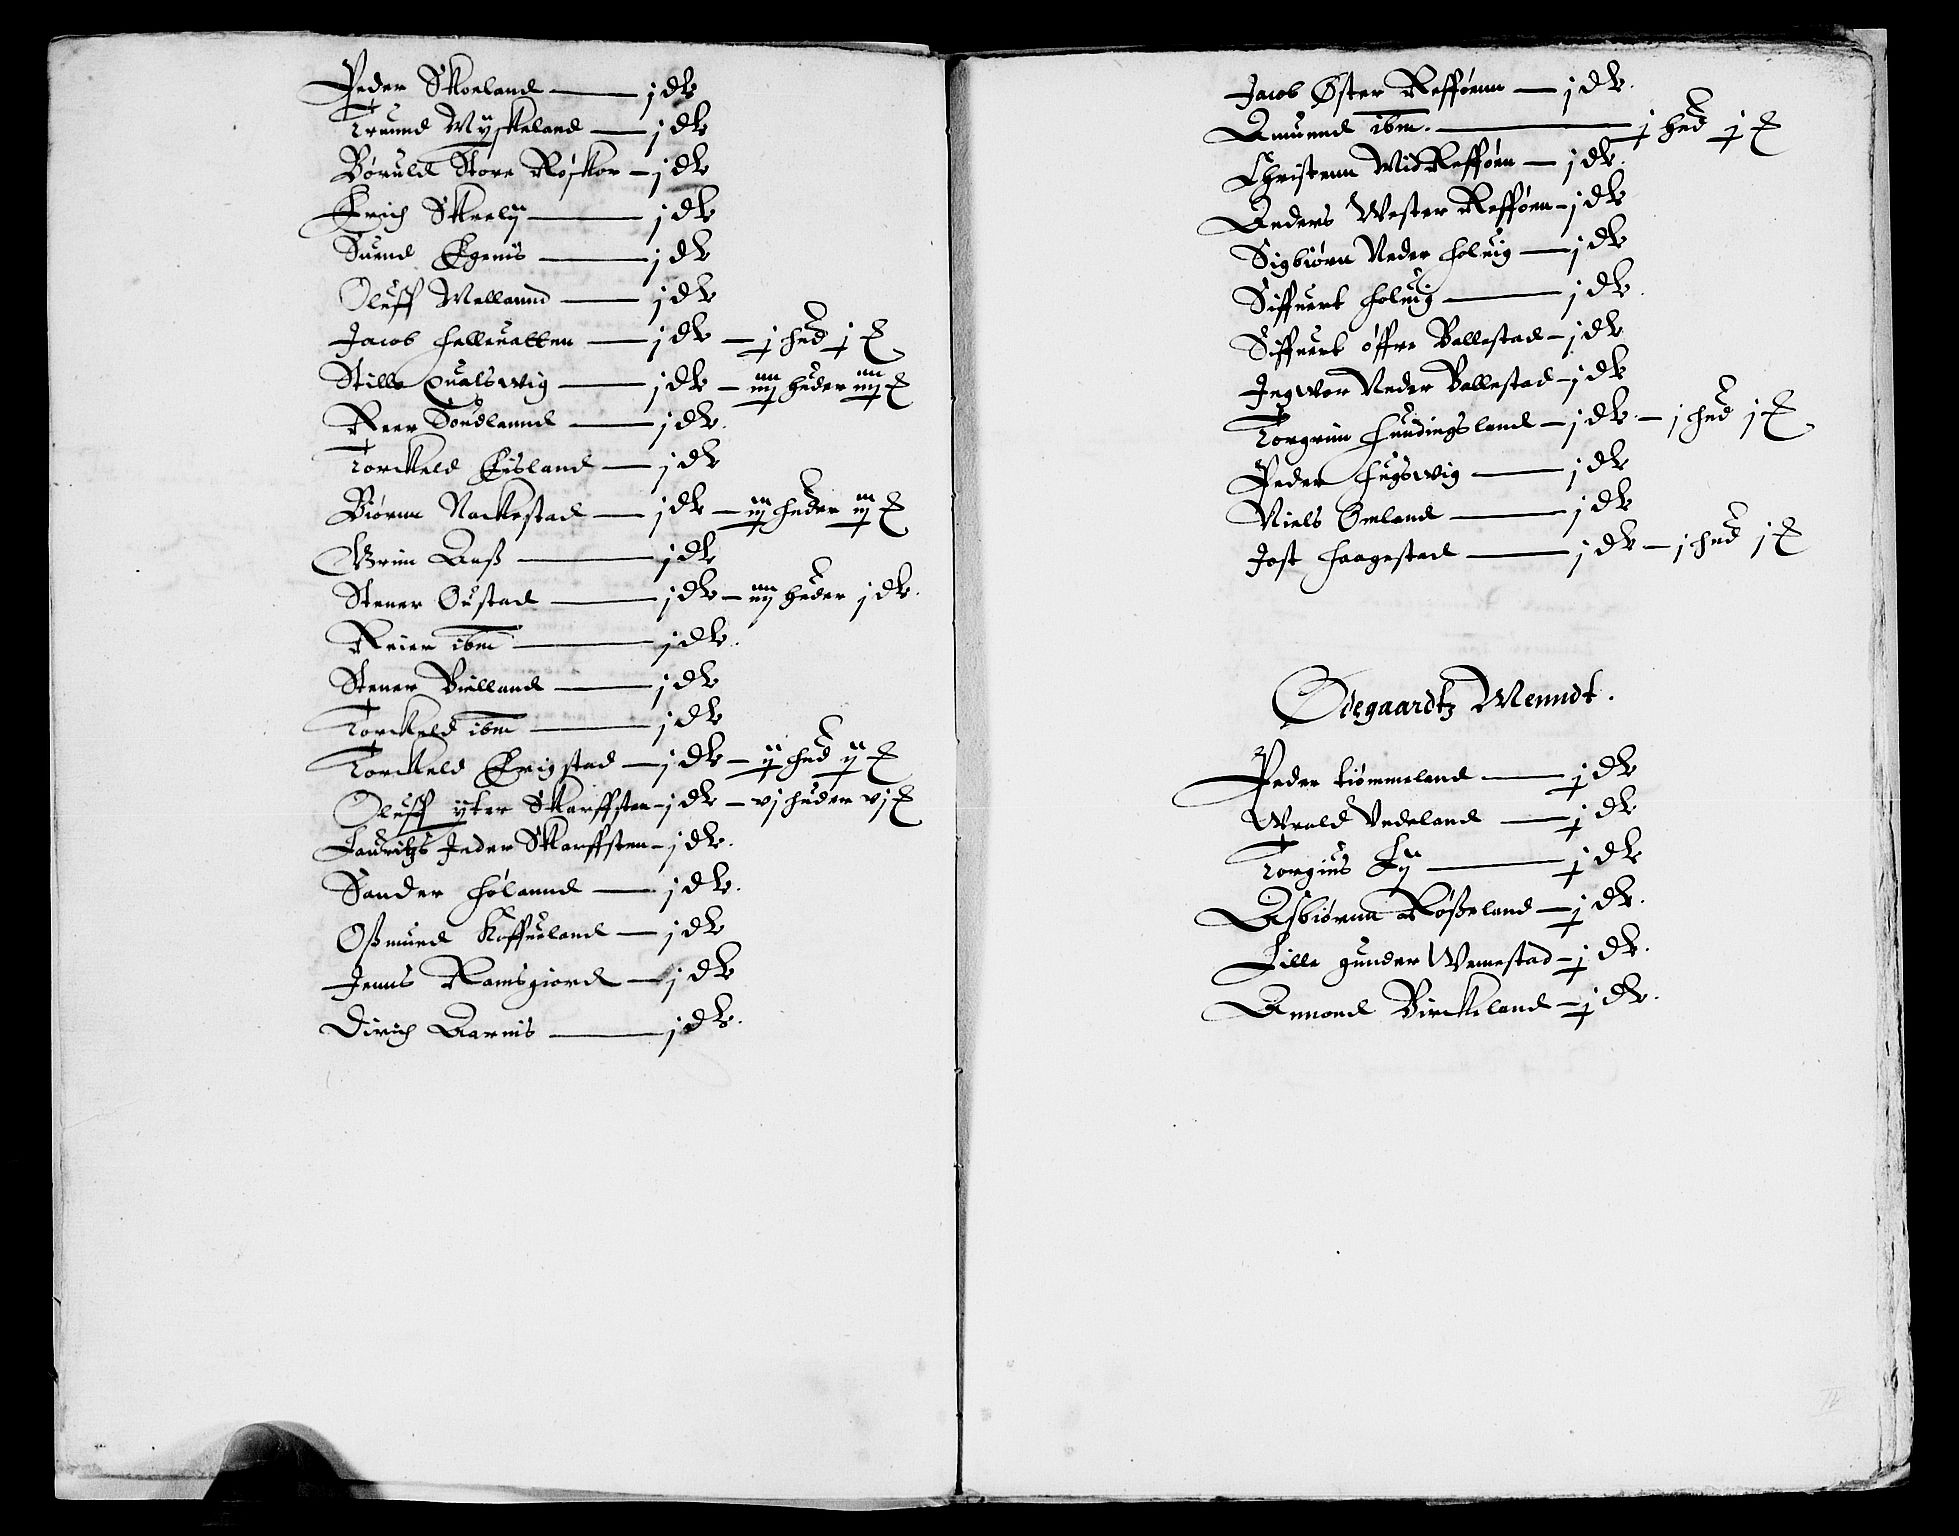 Peder Skoeland — j dlr
Trunnd Myskeland — j dlr
Børuld Store Røskor — j dlr
Erich Skeelÿ — j dlr
Suend Egenis — j dlr
Oluff Mellannd — j dlr
Jacob Helleuatten — j dlr — j hud j
Stille Qualswig — j dlr — iiij huder iiij
Reer Sundlannd — j dlr.
Torckeld Eisland — j dlr
Biørnn Nackestad — j dlr — iij huder iij
Grim Aaß — j dlr
Stener Oustad — j dlr — iiij huder j dlr.
Reier ibm — j dlr.
Stener Bielland — j dlr
Torckeld ibm — j dlr
Torckeld Erigstad — j dlr — ij hud ij
Oluff ÿter Skarffsten — j dlr — vj huder vj
Lauritzs Inder Skarffsten — j dlr.
Sander Hølannd — j dlr.
Oßmund Koffueland — j dlr
Jenns Ramsgiord — j dlr
Dirich Aarnis — j dlr.
Jacob Øster Refføenn — j dlr.
Amuend ibm. — j hud j
Christenn Mid Refføen — j dlr.
Anders Wester Refføen — j dlr
Sigbiørn Neder Holuig — j dlr
Siffuert Holuig — j dlr.
Siffuert øffre Ballestad — j dlr
Ingwor Neder Ballestad — j dlr
Torgrim Hundingsland — j dlr. — j hud j
Peder Hugswig — j dlr
Niels Omland — j dlr
Jost Haagestad — j dlr — j hud j
Ødegaardtz Menndt.
Peder tiømmeland — j dlr
Wrald Vedeland — j dlr
Torgius Lÿ — j dlr
Asbiørnn Røßeland — j dlr.
Lille gunder Wemestad — j dlr.
Anmond Birckeland — j dlr.